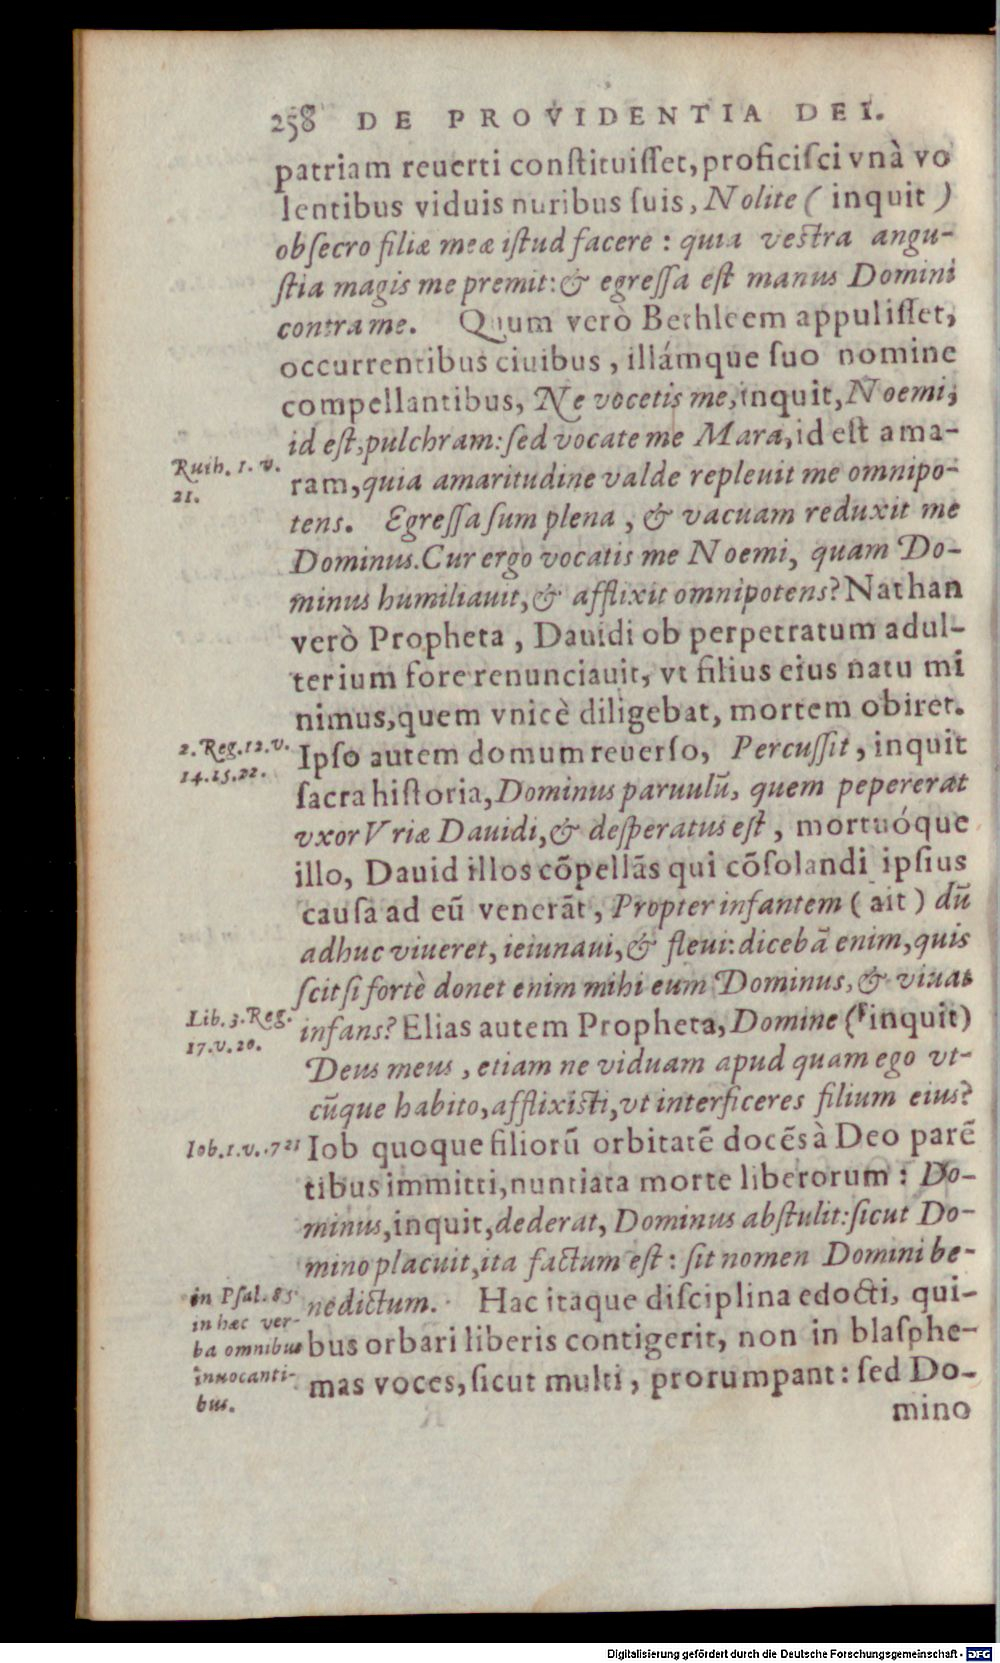 258 DE PROVIDENTIA DEI.
patriam reuerti conſtituiſſet, proficiſci vnà vo
lentibus viduis nuribus ſuis, Nolite ( inquit )
obſecro filiæ meæ iſtud facere : quia veſtra angu-
ſtia magis me premit: & egreſſa eſt manus Domini
contra me. Quum verò Bethleem appuliſſet,
occurrentibus ciuibus, illámque ſuo nomine
compellantibus, Ne vocetis me, inquit, Noemi,
id eſt, pulchram: ſed vocate me Mara, id eſt ama-
Ruth. 1. v.
21.
ram, quia amaritudine valde repleuit me omnipo-
tens. Egreſſa ſum plena, & vacuam reduxit me
Dominus. Cur ergo vocatis me Noemi, quam Do-
minus humiliauit, & afflixit omnipotens? Nathan
verò Propheta, Dauidi ob perpetratum adul-
terium fore renunciauit, vt filius eius natu mi
nimus, quem vnicè diligebat, mortem obiret.
2. Reg. 12. v.
14. 15. 22.
Ipſo autem domum reuerſo, Percuſſit, inquit
ſacra hiſtoria, Dominus paruulū, quem pepererat
vxor Vriæ Dauidi, & deſperatus eſt, mortuóque
illo, Dauid illos cōpellās qui cōſolandi ipſius
cauſa ad eū venerāt, Propter infantem ( ait ) dū
adhuc viueret, ieiunaui, & fleui: dicebā enim, quis
ſcit ſi fortè donet enim mihi eum Dominus, & viuat
Lib. 3. Reg.
17. v. 20.
infans? Elias autem Propheta, Domine ( inquit)
Deus meus, etiam ne viduam apud quam ego vt-
cūque habito, afflixiſti, vt interficeres filium eius?
Iob. 1. v. . 721
Iob quoque filiorū orbitatē docēs à Deo parē
tibus immitti, nuntiata morte liberorum : Do-
minus, inquit, dederat, Dominus abſtulit: ſicut Do-
mino placuit, ita factum eſt : ſit nomen Domini be-
in Pſal. 85
in hæc ver-
ba omnibus
inuocanti-
bus.
nedictum. Hac itaque diſciplina edocti, qui-
bus orbari liberis contigerit, non in blaſphe-
mas voces, ſicut multi, prorumpant: ſed Do-
mino
Digitalisierung gefördert durch die Deutsche Forschungsgemeinschaft - DFG